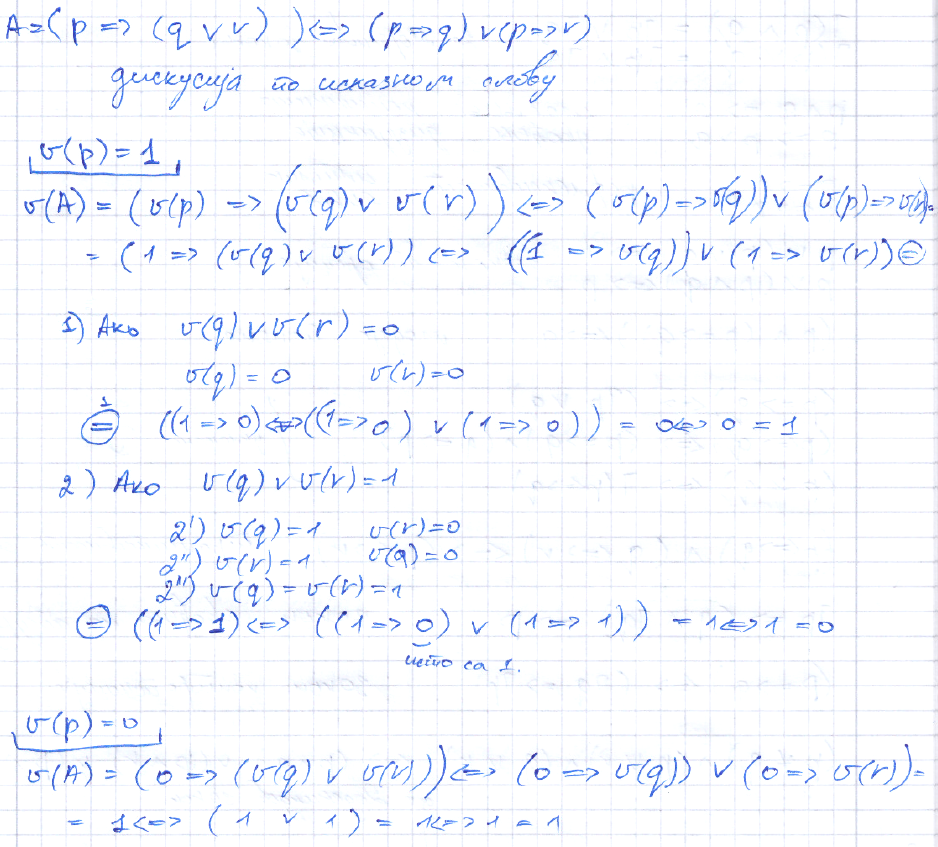 A = ( p => (q ∨ r) ) <=> (p => q) ∨ (p => r)
дискусија по исказном слову
v(p) = 1
v(A) = ( v(p) => (v(q) ∨ v(r) ) <=> ( v(p) => v(q)) ∨ (v(p) => v(r)) =
= ( 1 => (v(q) ∨ v(r)) <=> ((1 => v(q)) ∨ (1 => v(r)) =
1) Ако v(q) ∨ v(r) = 0
v(q) = 0 v(r) = 0
= ((1 => 0) <=> ((1 => 0) ∨ (1 => 0)) = 0 <=> 0 = 1
2) Ако v(q) ∨ v(r) = 1
2') v(q) = 1 v(r) = 0
2'') v(r) = 1 v(q) = 0
2''') v(q) = v(r) = 1
= ((1 => 1) <=> ((1 => 0) ∨ (1 => 1)) = 1 <=> 1 = 0
исто са 1.
v(p) = 0
v(A) = (0 => (v(q) ∨ v(r))) <=> (0 => v(q)) ∨ (0 => v(r)) =
= 1 <=> ( 1 ∨ 1 ) = 1 <=> 1 = 1